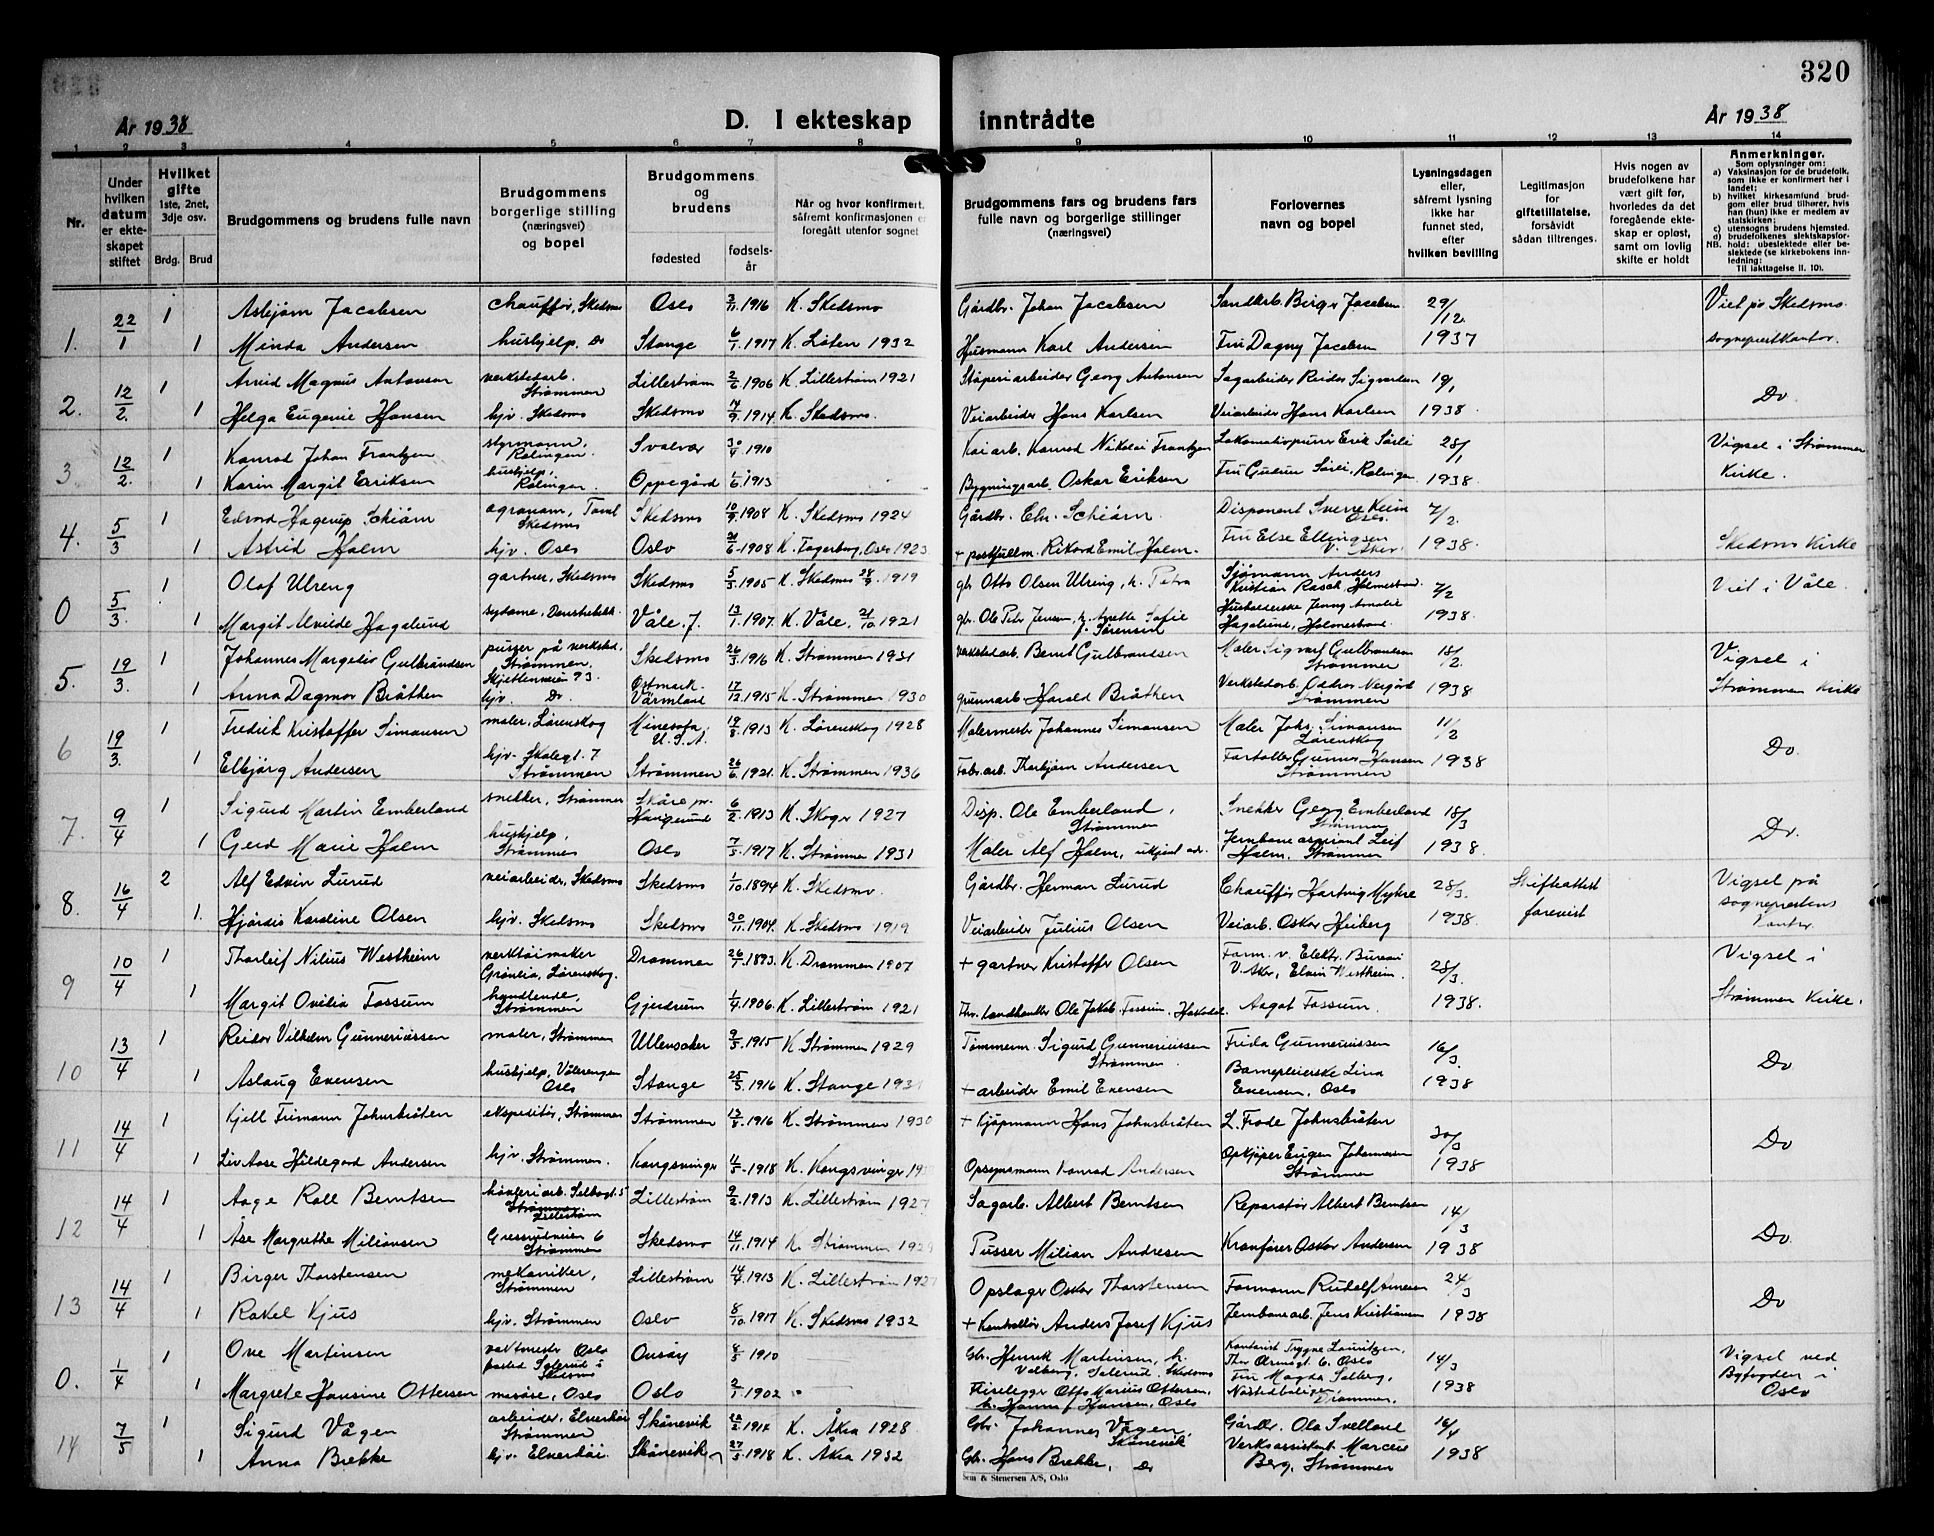 320
År 1938
D. I ekteskap inntrådte
År 1938
1 2 3 4 5 6 7 8 9 10 11 12 13 14
Nr.
Under hvilken datum er ekteskapet stiftet
Hvilket gifte 1ste, 2net, 3dje osv.
Brdg. Brud
Brudgommens og brudens fulle navn
Brudgommens borgerlige stilling (næringsvei) og bopel
Brudgommens og brudens
fødested
fødselsår
Når og hvor konfirmert, såfremt konfirmasjonen er foregått utenfor sognet
Brudgommens fars og brudens fars fulle navn og borgerlige stillinger (næringsvei)
Forlovernes navn og bopel
Lysningsdagen eller, såfremt lysning ikke har funnet sted, efter hvilken bevilling
Legitimasjon for giftetillatelse, forsåvidt sådan tiltrenges.
Hvis nogen av brudefolkene har vært gift før, hvorledes da det foregående ekteskap er opløst, samt om lovlig skifte er holdt
Anmerkninger.
Som oplysninger om:
a) Vaksinasjon for de brudefolk, som ikke er konfirmert her i landet;
b) hvilket kirkesamfund brudgom eller brud tilhører, hvis han (hun) ikke er medlem av statskirken;
c) utensogns brudens hjemsted.
d) brudefolkenes slektskapsforhold: ubeslektede eller beslektede (se kirkebokens innledning:
NB. Til iakttagelse II. 10).
1. 22/1 1 Asbjørn Jacobsen chauffør, Skedsmo Oslo 3/11 1916 K. Skedsmo Gårdbr. Johan Jacobsen Sandkrb. Birger Jacobsen 29/12 Viet på Skedsmo
1 Minda Andersen hushjelp. Do Stange 6/1 1917 K. Løten 1932 Husmann Karl Andersen Fru Dagny Jacobsen 1937 sogneprestkontor.
2. 12/2 1 Arvid Magnus Antonsen verkstedarb. Strømmen Lillestrøm 2/6 1906 K. Lillestrøm 1921 Støperiarbeider Georg Antonsen Sagarbeider Reidar Sigvartsen 19/1
1 Helga Eugenie Hansen hjv. Skedsmo Skedsmo 17/9 1914 K. Skedsmo. Veiarbeider Hans Karlsen Veiarbeider Hans Karlsen 1938. Do.
3 12/2 1 Konrad Johan Frantzen styrmann, Rælingen Svolvær 30/4 1910 Kaiarb. Konrad Nikolai Frantzen Lokomotivpusser Erik Sørli 28/1 Vigsel i Strømmen
1 Karin Margit Eriksen hushjelp, Rælingen Oppegård 1/6 1913 Bygningsarb. Oskar Eriksen Fru Gudrun Sørli, Rælingen 1938. Kirke.
4. 5/3 1 Edvard Hagerup Schiørn agronom, Skedsmo Skedsmo 10/9 1908 K. Skedsmo 1924 Gårdbr. Chr. Schiørn. Disponent Sverre Keim Oslo. 7/2
1 Astrid Holm hjv. Oslo Oslo 1908 K. Fagerborg, Oslo 1923 + postfullm. Rikard Emil Holm. Fru Else Ellingsen V. Aker. 1938. Skedsmo Kirke
0 5/3 1 Olaf Ulreng gartner, Skedsmo Skedsmo 5/5 1905 K. Skedsmo 28/9 1919 gbr. Otto Olsen Ulreng, h. Petra Sjømann Anders Kristian Rasch, Holmestrand 7/2 Viet i Våle.
1 Margit Alvilde Hagelund sydame, Våle. J. 13/1 1907. K. Våle, 21/10 1921 gbr. Ole Petr Jensen, h. Anette Sofie f. Sørensen Husholderske Jenny Amalie Hagelund, Holmestrand. 1938.
5. 19/3. 1 Johannes Margelio Gulbrandsen pusser på verksted, Strømmen. Skedsmo 26/3 1916 K. Strømmen 1931 verkstedarb. Bernt Gulbrandsen Maler Sigvart Gulbrandsen Strømmen 18/2. Vigsel i
1 Anna Dagmar Bråthen Skjettenveien 93. hjv. Do. Østmark. Värmland 17/12 1915 K. Strømmen 1930 grunnarb Harald Bråthen Verkstedarb. Oddvar Nergård Strømmen 1938 Strømmen Kirke
6 19/3. 1 Fredrik Kristoffer Simonsen maler, Lørenskog Minesota, U.S.A. 19/8 1913 K. Lørenskog 1928 Malermester Johannes Simonsen Maler Johs. Simonsen Lørenskog 11/2
1 Elbjørg Andersen hjv. Skolegt. 7 Strømmen Strømmen 26/6 1921. K. Strømmen 1936 Fabr.arb. Thorbjørn Andersen Fortoller Gunnar Hansen Strømmen 1938 Do.
7. 9/4 1 Sigurd Martin Emberland snekker, Strømmen 6/2 1913 K. Skoger 1927 Disp. Ole Emberland, Strømmen Snekker Georg Emberland Strømmen 18/3
1 Gerd Marie Holm hushjelp, Strømmen Oslo 7/5 1917 K. Strømmen 1931 Maler Alf Holm, ukjent adr. Jernbaneaspirant Leif Holm, Strømmen 1938. Do.
8. 16/4 2 Alf Edvin Lurud veiarbeider, Skedsmo Skedsmo 1/10 1894 K. Skedsmo. Gårdbr. Herman Lurud Chauffør Hartvig Myhre 28/3. Skifteattest Vigsel på
1. Hjørdis Karoline Olsen hjv. Skedsmo Skedsmo 30/11 1904. K. Skedsmo 1919 Veiarbeider Julius Olsen Veiarb. Oskar Høiberg 1938. forevist sogneprestens kontor.
9 10/4 1 Thorleif Nilius Westheim verktøimaker Grønlia, Lørenskog. Drammen 26/7 1893. K. Drammen 1907 + gartner Kristoffer Olsen Form. v. Elektr. Bureau V. Aker, Elvin Westheim. 28/3. Vigsel i
1 Margit Ovilia Fossum handlende, Strømmen Gjerdrum 1/4 1906. K. Lillestrøm 1921 Fhv. Landhandler Ole Jakob Fossum, Hakadal. Aagot Fossum. 1938. Strømmen Kirke.
10 13/4 1 Reidar Vilhelm Gunneriussen maler, Strømmen Ullensaker 9/5 1915 K. Strømmen 1929 Tømmerm. Sigurd Gunneriussen Strømmen. Frida Gunneriussen 16/3
1 Aslaug Evensen hushjelp, Vålerengen Oslo Stange 25/5 1916 K. Stange + arbeider Emil Evensen Barnepleierske Lina Evensen, Oslo 1938 Do
11 14/4 1 Kjell Frimann Johnsbråten ekspeditør, Strømmen Strømmen 13/8 1916 K. Strømmen 1930 + Kjøpmann Hans Johnsbråten L. Frode Johnsbråten 30/3
1 Liv Aase Hildegard Andersen hjv. Strømmen. Kongsvinger 1918 K. Kongsvinger Opsynsmann Konrad Andersen Opkjøper Eugen Johannesen Strømmen 1938 Do
12 14/4 1 Aage Roll Berntsen høvleriarb. Solbogt. 5 Lillestrøm Lillestrøm 9/2 1913 K. Lillestrøm 1927 Sagarb. Albert Berntsen Reparatør Albert Berntsen 14/3
1 Åse Margrethe Miliansen 6 Strømmen Skedsmo 14/11 1914 K. Strømmen Pusser Milian Andresen Kranfører Oskar Andersen 1938 Do.
13 14/4 1 Birger Thorstensen mekaniker, Strømmen Lillestrøm 14/4 1913 K. Lillestrøm Opslager Oskar Thorstensen Formann Rudolf Arnesen 24/3
1 Rakel Kjus hjv. Strømmen Oslo 8/10 1917 K. Skedsmo 1932 + Kontrollør Anders Josef Kjus Jernbanearb. Jens Kristiansen 1938 Do
0. 1/4 1 Ove Martinsen vaktmester Oslo Onsøy 8/5 1910 Gbr. Henrik Martinsen, h. Skedsmo Kontorist Trygve Lauritzen, 6. Oslo 14/3 Vigsel ved
1 Margrete Hansine Ottersen Oslo Oslo 2/1 1902 Fliselegger Otto Marius Ottersen, h. Hanna f. Hansen, Oslo Fru Magda Solberg, Drammen. 1938 Byfogden i Oslo
14 7/5 1 Sigurd Vågen arbeider, Elverhøi Strømmen Skånevik 1914 K. Åkra 1928 Gbr. Johannes Vågen, Skånevik Gårdbr. Ola Svelland 16/4
1 Anna Brekke hjv. Elverhøi. Skånevik 27/5 1918 K. Åkra 1932 Gbr. Hans Brekke, Do Verksassistent Berg, Strømmen 1938
Sem & Stenersen A/S, Oslo